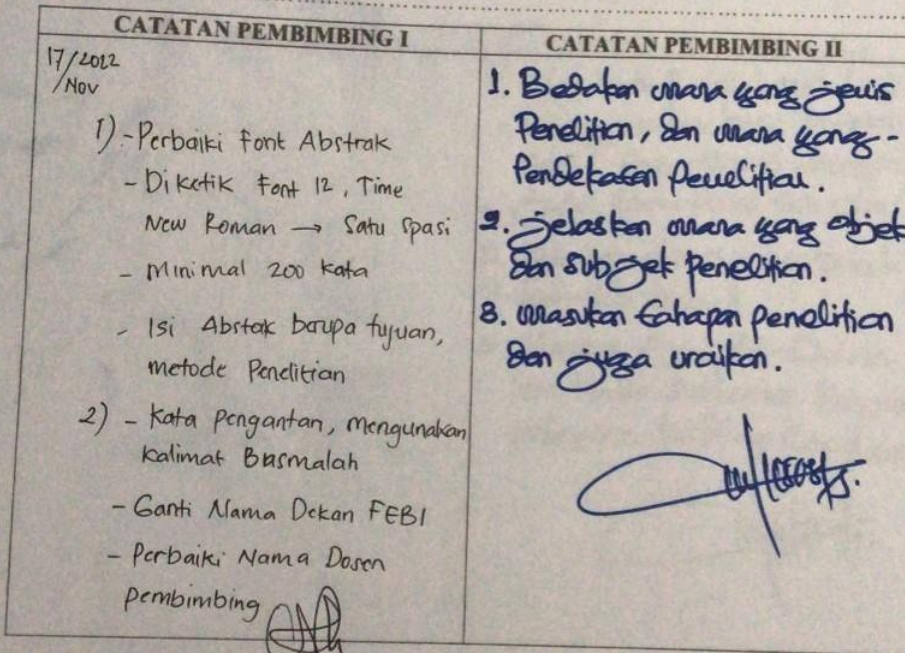 CATATAN PEMBIMBING I
17/2022
/Nov
1) - Perbaiki font Abstrak
- Diketik Font 12, Time
New Roman → Satu Spasi
- Minimal 200 kata
- Isi Abstak barupa tujuan,
metode Penelitian
2) - Kata pengantan, mengunakan
kalimat Basmalah
- Ganti Nama Dekan FEBI
- Perbaiki Nama Dosen
pembimbing
CATATAN PEMBIMBING II
1. Bedakan mana yang jenis
Penelitian, dan mana yang -
Pendekatan Penelitian.
2. jelaskan mana yang objek
dan subjek penelitian.
3. masukan tahapan penelitian
dan juga uraikan.